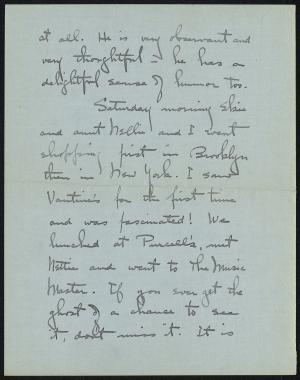 at all. He is very observant and
very thoughtful – he has a
delightful sense of humor too.
Saturday morning Elsie
and aunt Nellie and I went
shopping first in Brooklyn
then in New York. I saw
Vantine's for the first time
and was fascinated! We
lunched at Purcell's, met
Nettie and went to The Music
Master. If you ever get the
ghost of a chance to see
it, don't miss it. It is